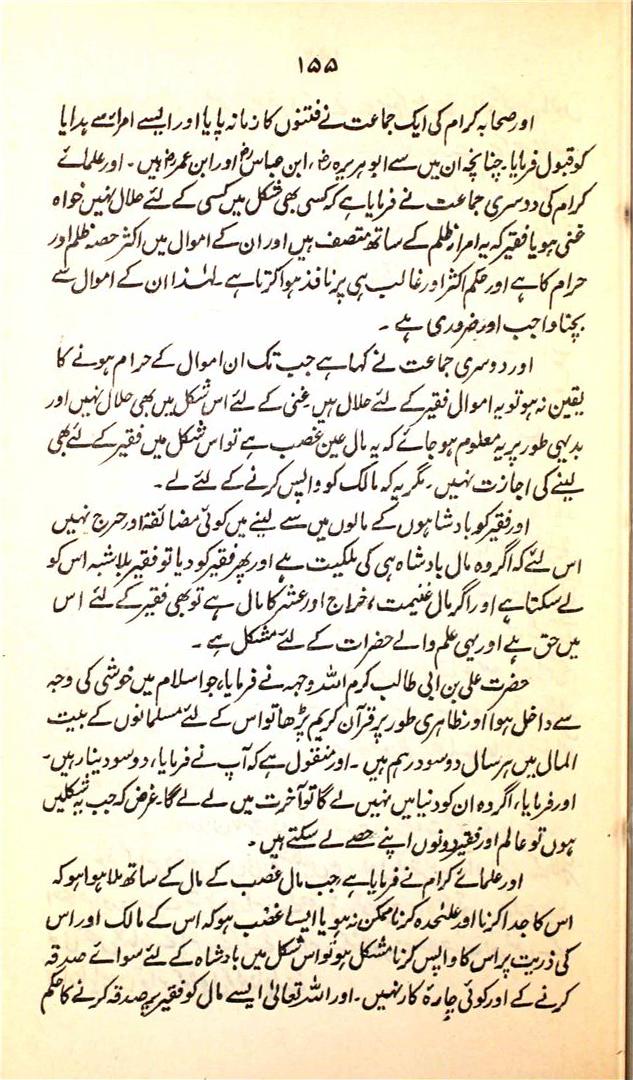 ۱۵۵
اور صحابہ کرام کی ایک جماعت نے فتنوں کا زمانہ پایا اور ایسے امراء سے ہدایا
کو قبول فرمایا۔ چنانچہ ان میں سے ابو ہریرہ رضؓ، ابن عباس رضؓ اور ابن عمر رضؓ ہیں۔ اور علمائے
کرام کی دوسری جماعت نے فرمایا ہے کہ کسی بھی شکل میں کسی کے لئے حلال نہیں خواہ
غنی ہو یا فقیر کہ یہ امراء ظلم کے ساتھ متصف ہیں اور ان کے اموال میں اکثر حصہ ظلم اور
حرام کا ہے اور حکم اکثر اور غالب ہی پر نافذ ہوا کرتا ہے۔ لہٰذا ان کے اموال سے
بچنا واجب اور ضروری ہے۔
اور دوسری جماعت نے کہا ہے جب تک ان اموال کے حرام ہونے کا
یقین نہ ہو تو یہ اموال فقیر کے لئے حلال ہیں غنی کے لئے اس شکل میں بھی حلال نہیں اور
بدیہی طور پر یہ معلوم ہو جائے کہ یہ مال عین غصب ہے تو اس شکل میں فقیر کے لئے بھی
لینے کی اجازت نہیں۔ مگر یہ کہ مالک کو واپس کرنے کے لئے لے۔
اور فقیر کو بادشاہوں کے مالوں میں سے لینے میں کوئی مضائقہ اور حرج نہیں
اس لئے کہ اگر وہ مال بادشاہ ہی کی ملکیت ہے اور پھر فقیر کو دیا تو فقیر بلاشبہ اس کو
لے سکتا ہے اور اگر مال غنیمت، خراج اور عشر کا مال ہے تو بھی فقیر کے لئے اس
میں حق ہے اور یہی علم والے حضرات کے لئے مشکل ہے۔
حضرت علی بن ابی طالب کرم اللہ وجہہ نے فرمایا، جو اسلام میں خوشی کی وجہ
سے داخل ہوا اور ظاہری طور پر قرآن کریم پڑھا تو اس کے لئے مسلمانوں کے بیت
المال میں ہر سال دو سو درہم ہیں۔ اور منقول ہے کہ آپ نے فرمایا، دو سو دینار ہیں۔
اور فرمایا، اگر وہ ان کو دنیا میں نہیں لے گا تو آخرت میں لے لے گا۔ غرض کہ جب یہ شکلیں
ہوں تو عالم اور فقیر دونوں اپنے حصے لے سکتے ہیں۔
اور علمائے کرام نے فرمایا ہے، جب مال غصب کے مال کے ساتھ ملا ہوا ہو کہ
اس کا جدا کرنا اور علیٰحدہ کرنا ممکن نہ ہو یا ایسا غضب ہو کہ اس کے مالک اور اس
کی ذریت پر اس کا واپس کرنا مشکل ہو تو اس شکل میں بادشاہ کے لئے سوائے صدقہ
کرنے کے اور کوئی چارۂ کار نہیں۔ اور اللہ تعالیٰ ایسے مال کو فقیر پر صدقہ کرنے کا حکم